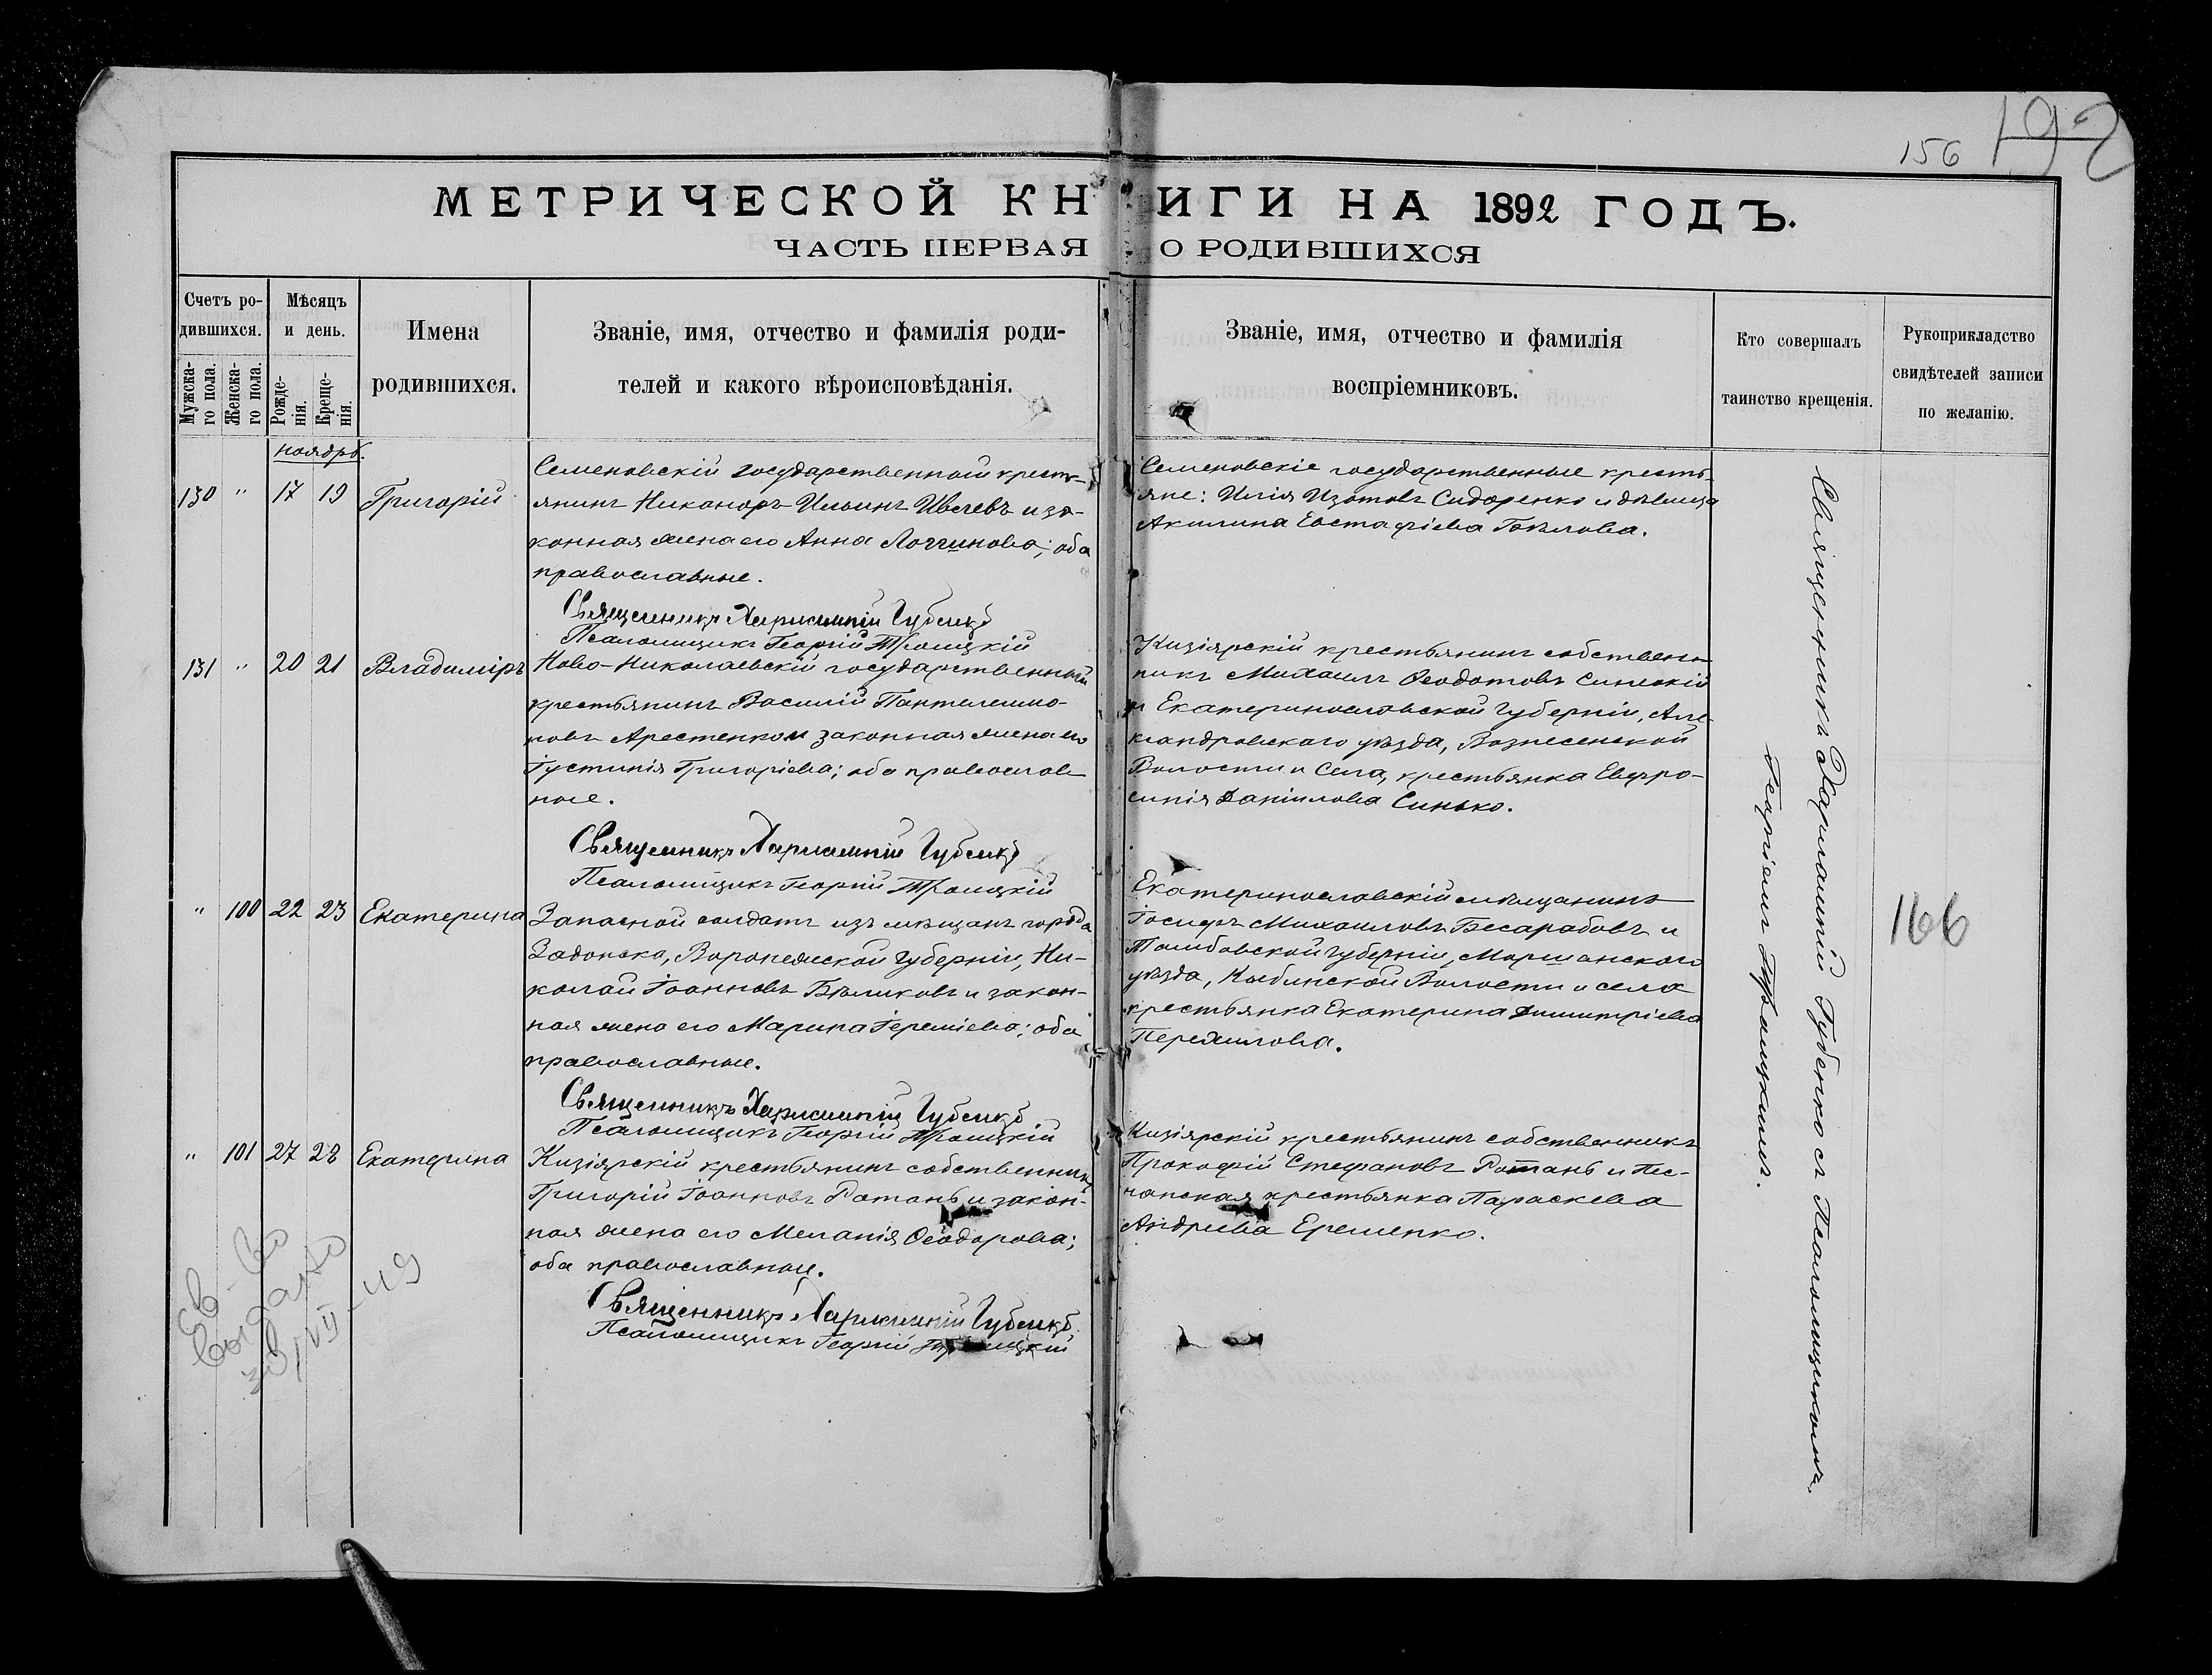 156 192
МЕТРИЧЕСКОЙ КНИГИ НА 1892 ГОДЪ.
ЧАСТЬ ПЕРВАЯ О РОДИВШИХСЯ
Счетъ ро-
дившихся.
Мужска-
го пола.
Женска-
го пола.
Мѣсяцъ
и день.
Рожде-
нія.
Креще-
нія.
Имена
родившихся.
Званіе, имя, отчество и фамилія роди-
телей и какого вѣроисповѣданія.
Званіе, имя, отчество и фамилія
воспріемниковъ.
Кто совершалъ
таинство крещенія.
Рукоприкладство
свидѣтелей записи
по желанію.
ноябрь.
130 " 17 19 Григорій
Семеновскій государственный кресть-
янинъ Никаноръ Ильинъ Ивлевъ и за-
конная жена его Анна Логгинова; оба
православные.
Священникъ Харлампій Губенко
Псаломщикъ Георгій Троицкій
Семеновскіе государственные кресть-
яне: Илія Изотовъ Сидоренко и дѣвица
Акилина Евстафіева
131 " 20 21 Владиміръ
Ново-Николаевскій государственный
крестьянинъ Василій Пантелеимо-
новъ Арестенко и законная жена его
Іустинія Григоріева; оба православ-
ные.
Священникъ Харлампій Губенко
Псаломщикъ Георгій Троицкій
Кизіярскій крестьянинъ собствен-
никъ Михаилъ Ѳеодотовъ
и Екатеринославской Губерніи, Але-
ксандровскаго уѣзда, Вознесенской
Волости и Села, крестьянка Евфро-
синія Даніилова Синько.
" 100 22 23 Екатерина
Запасной солдатъ изъ мѣщанъ города
Задонска, Воронежской Губерніи, Ни-
колай Іоанновъ Бѣликовъ и закон-
ная жена его Марина Іереміева; оба
православные.
Священникъ Харлампій Губенко
Псаломщикъ Георгій Троицкій
Екатеринославскій мѣщанинъ
Іосифъ Михаиловъ Бесарабовъ и
Тамбовской Губерніи, Моршанскаго
уѣзда, Волости и села
крестьянка Екатерина Димитріева
Пережилова.
" 101 27 28 Екатерина
Кизіярскій крестьянинъ собственникъ
Григорій Іоанновъ Ротань и закон-
ная жена его Меланія Ѳеодорова;
оба православные.
Священникъ Харлампій Губенко
Псаломщикъ Георгій Троицкій
Кизіярскій крестьянинъ собственникъ
Прокофій Стефановъ Ротань и Пес-
чанская крестьянка Параскева
Андреева Еременко.
Священникъ Харлампій Губенко съ Псаломщикомъ
Георгіемъ Троицкимъ.
166
Св-во
выдано